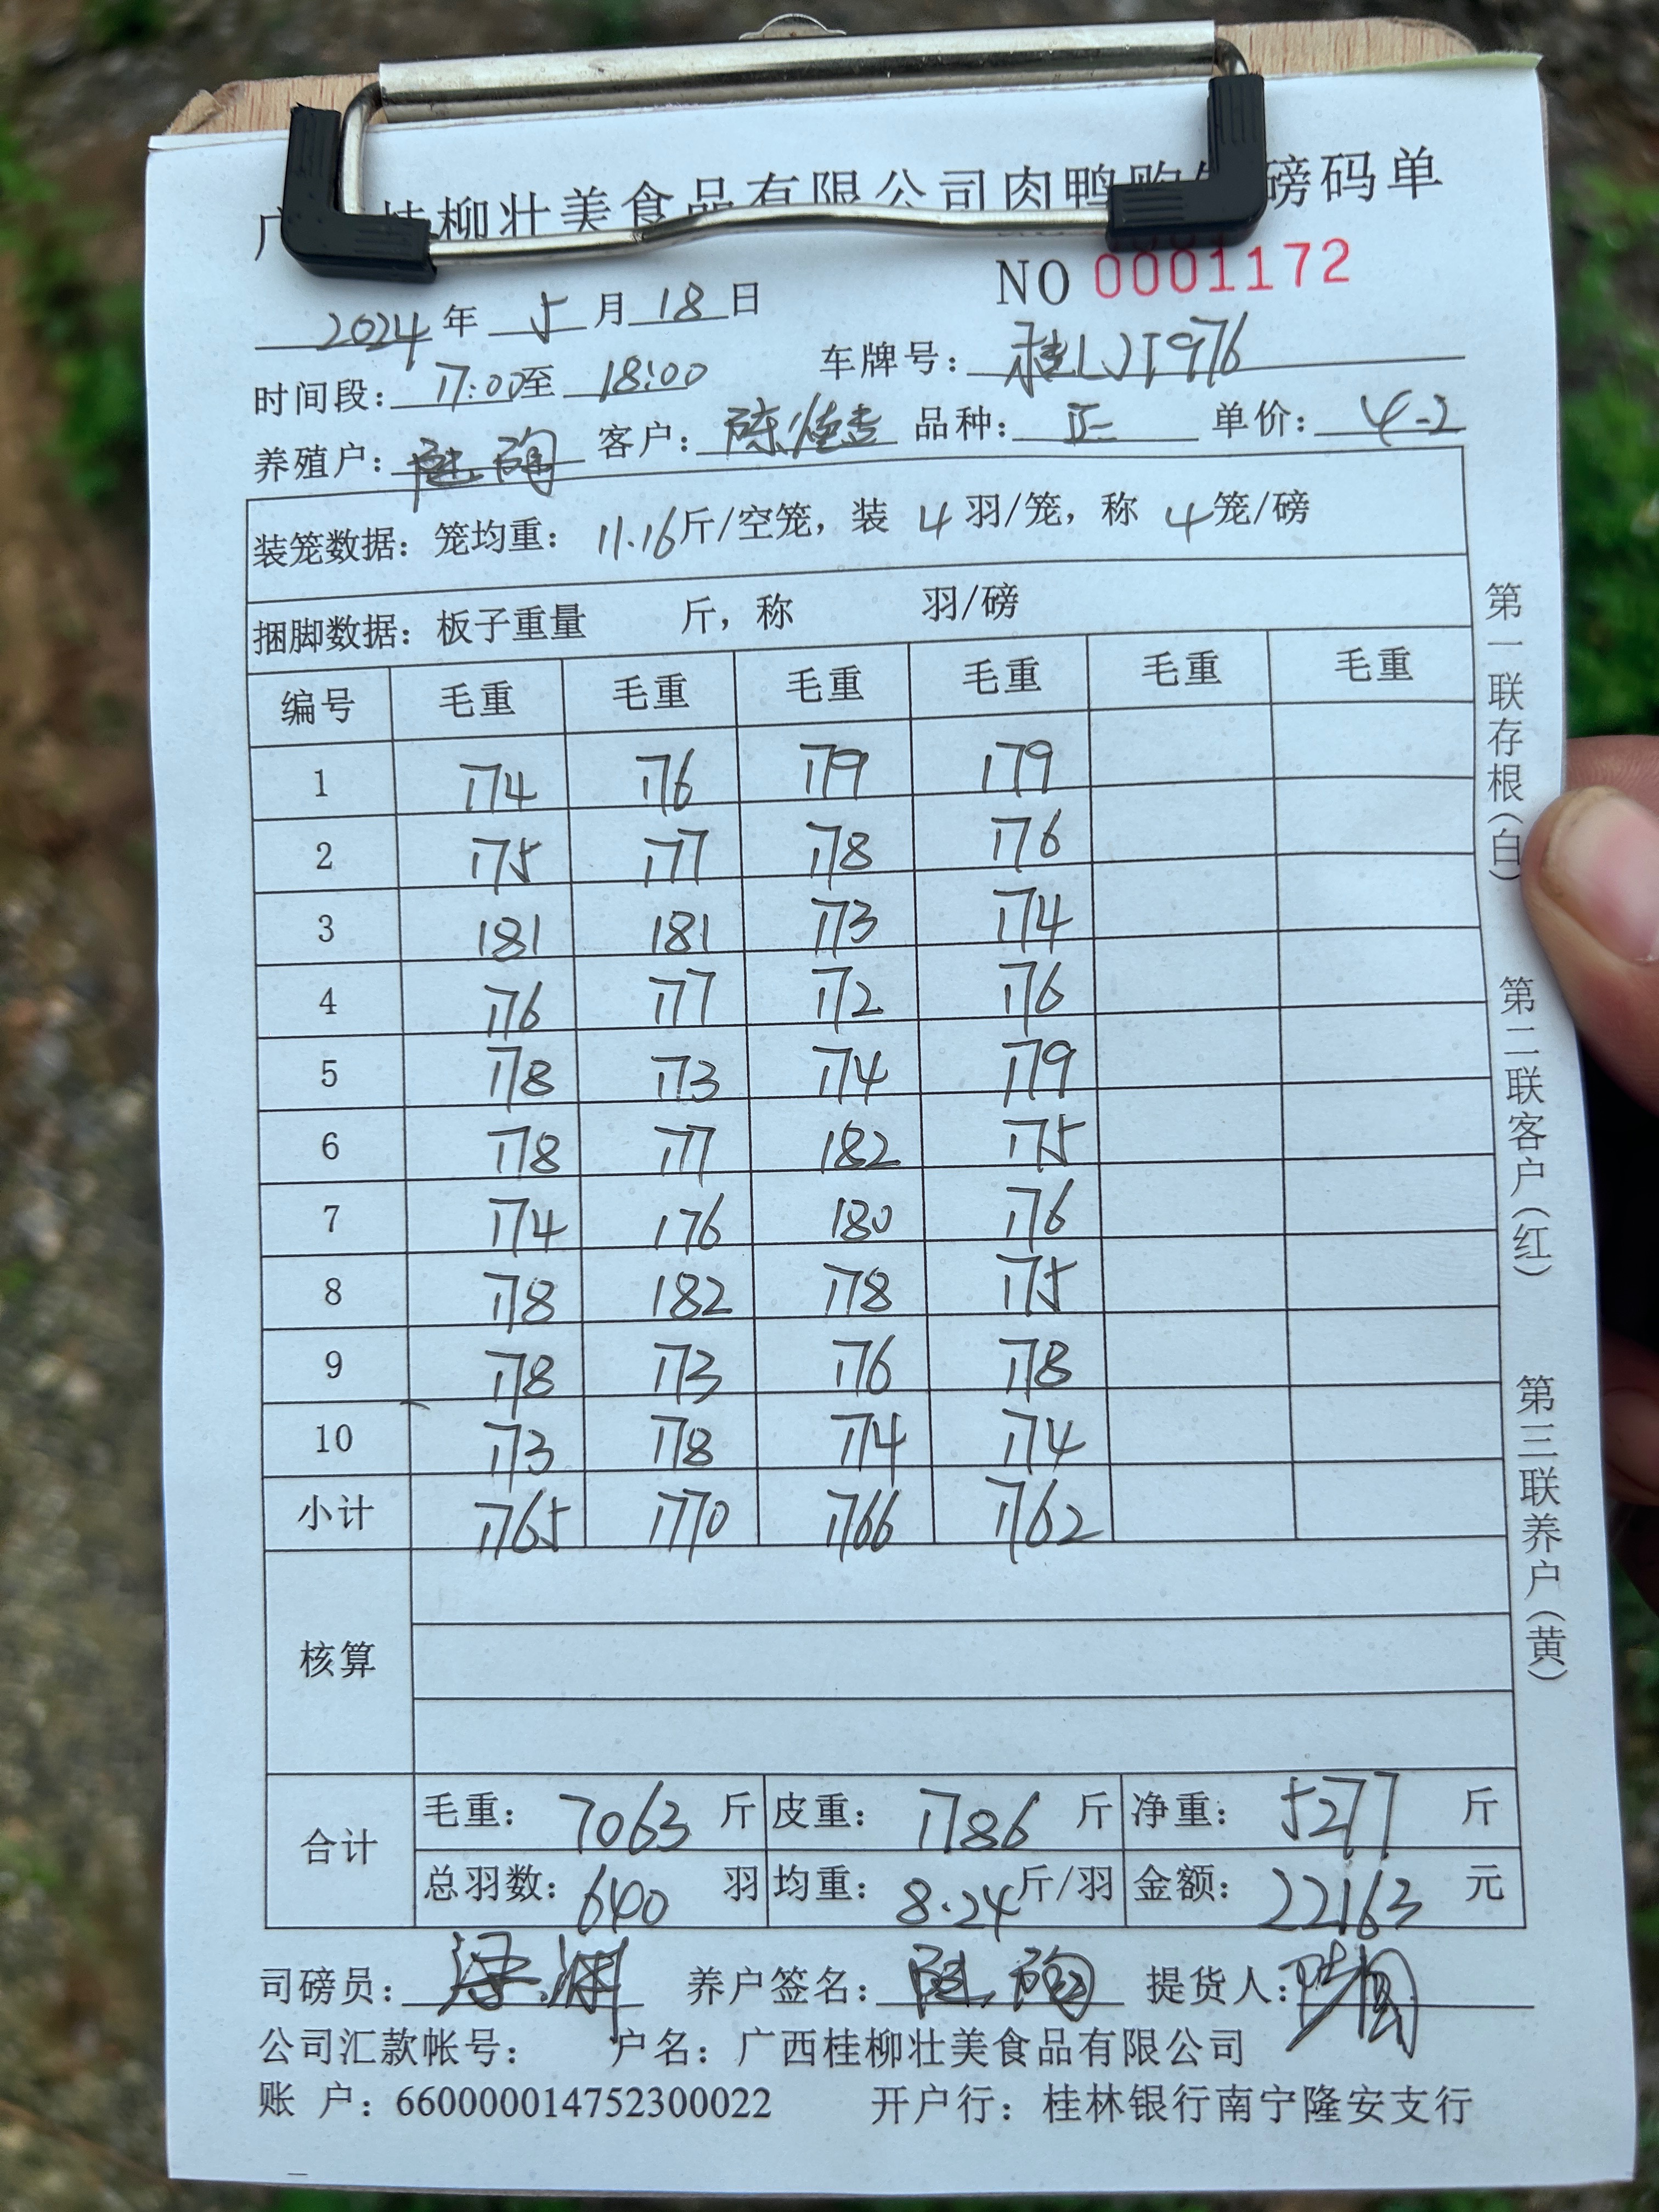 桂柳壮美食品有限公司肉鸭购销磅码单
NO 0001172
2024年 5月18日
时间段：17:00至 18:00 车牌号：桂LJT976
养殖户： 客户：陈 品种：正 单价：4.2
装笼数据：笼均重：11.16斤/空笼，装 4 羽/笼，称 4笼/磅
捆脚数据：板子重量 斤，称 羽/磅
编号 毛重 毛重 毛重 毛重 毛重 毛重
1 174 176 179 179
2 175 177 178 176
3 181 181 173 174
4 176 177 172 176
5 178 173 174 179
6 178 177 182 175
7 174 176 180 176
8 178 182 178 175
9 178 173 176 178
10 173 178 174 174
小计 1765 1770 1766 1762
核算
合计
毛重：7063斤 皮重：1786斤 净重：5277斤
总羽数：640 羽 均重：8.24斤/羽 金额：22163元
司磅员： 养户签名： 提货人：
公司汇款帐号： 户名：广西桂柳壮美食品有限公司
账 户：660000014752300022 开户行：桂林银行南宁隆安支行
第一联存根（白） 第二联客户（红） 第三联养户（黄）